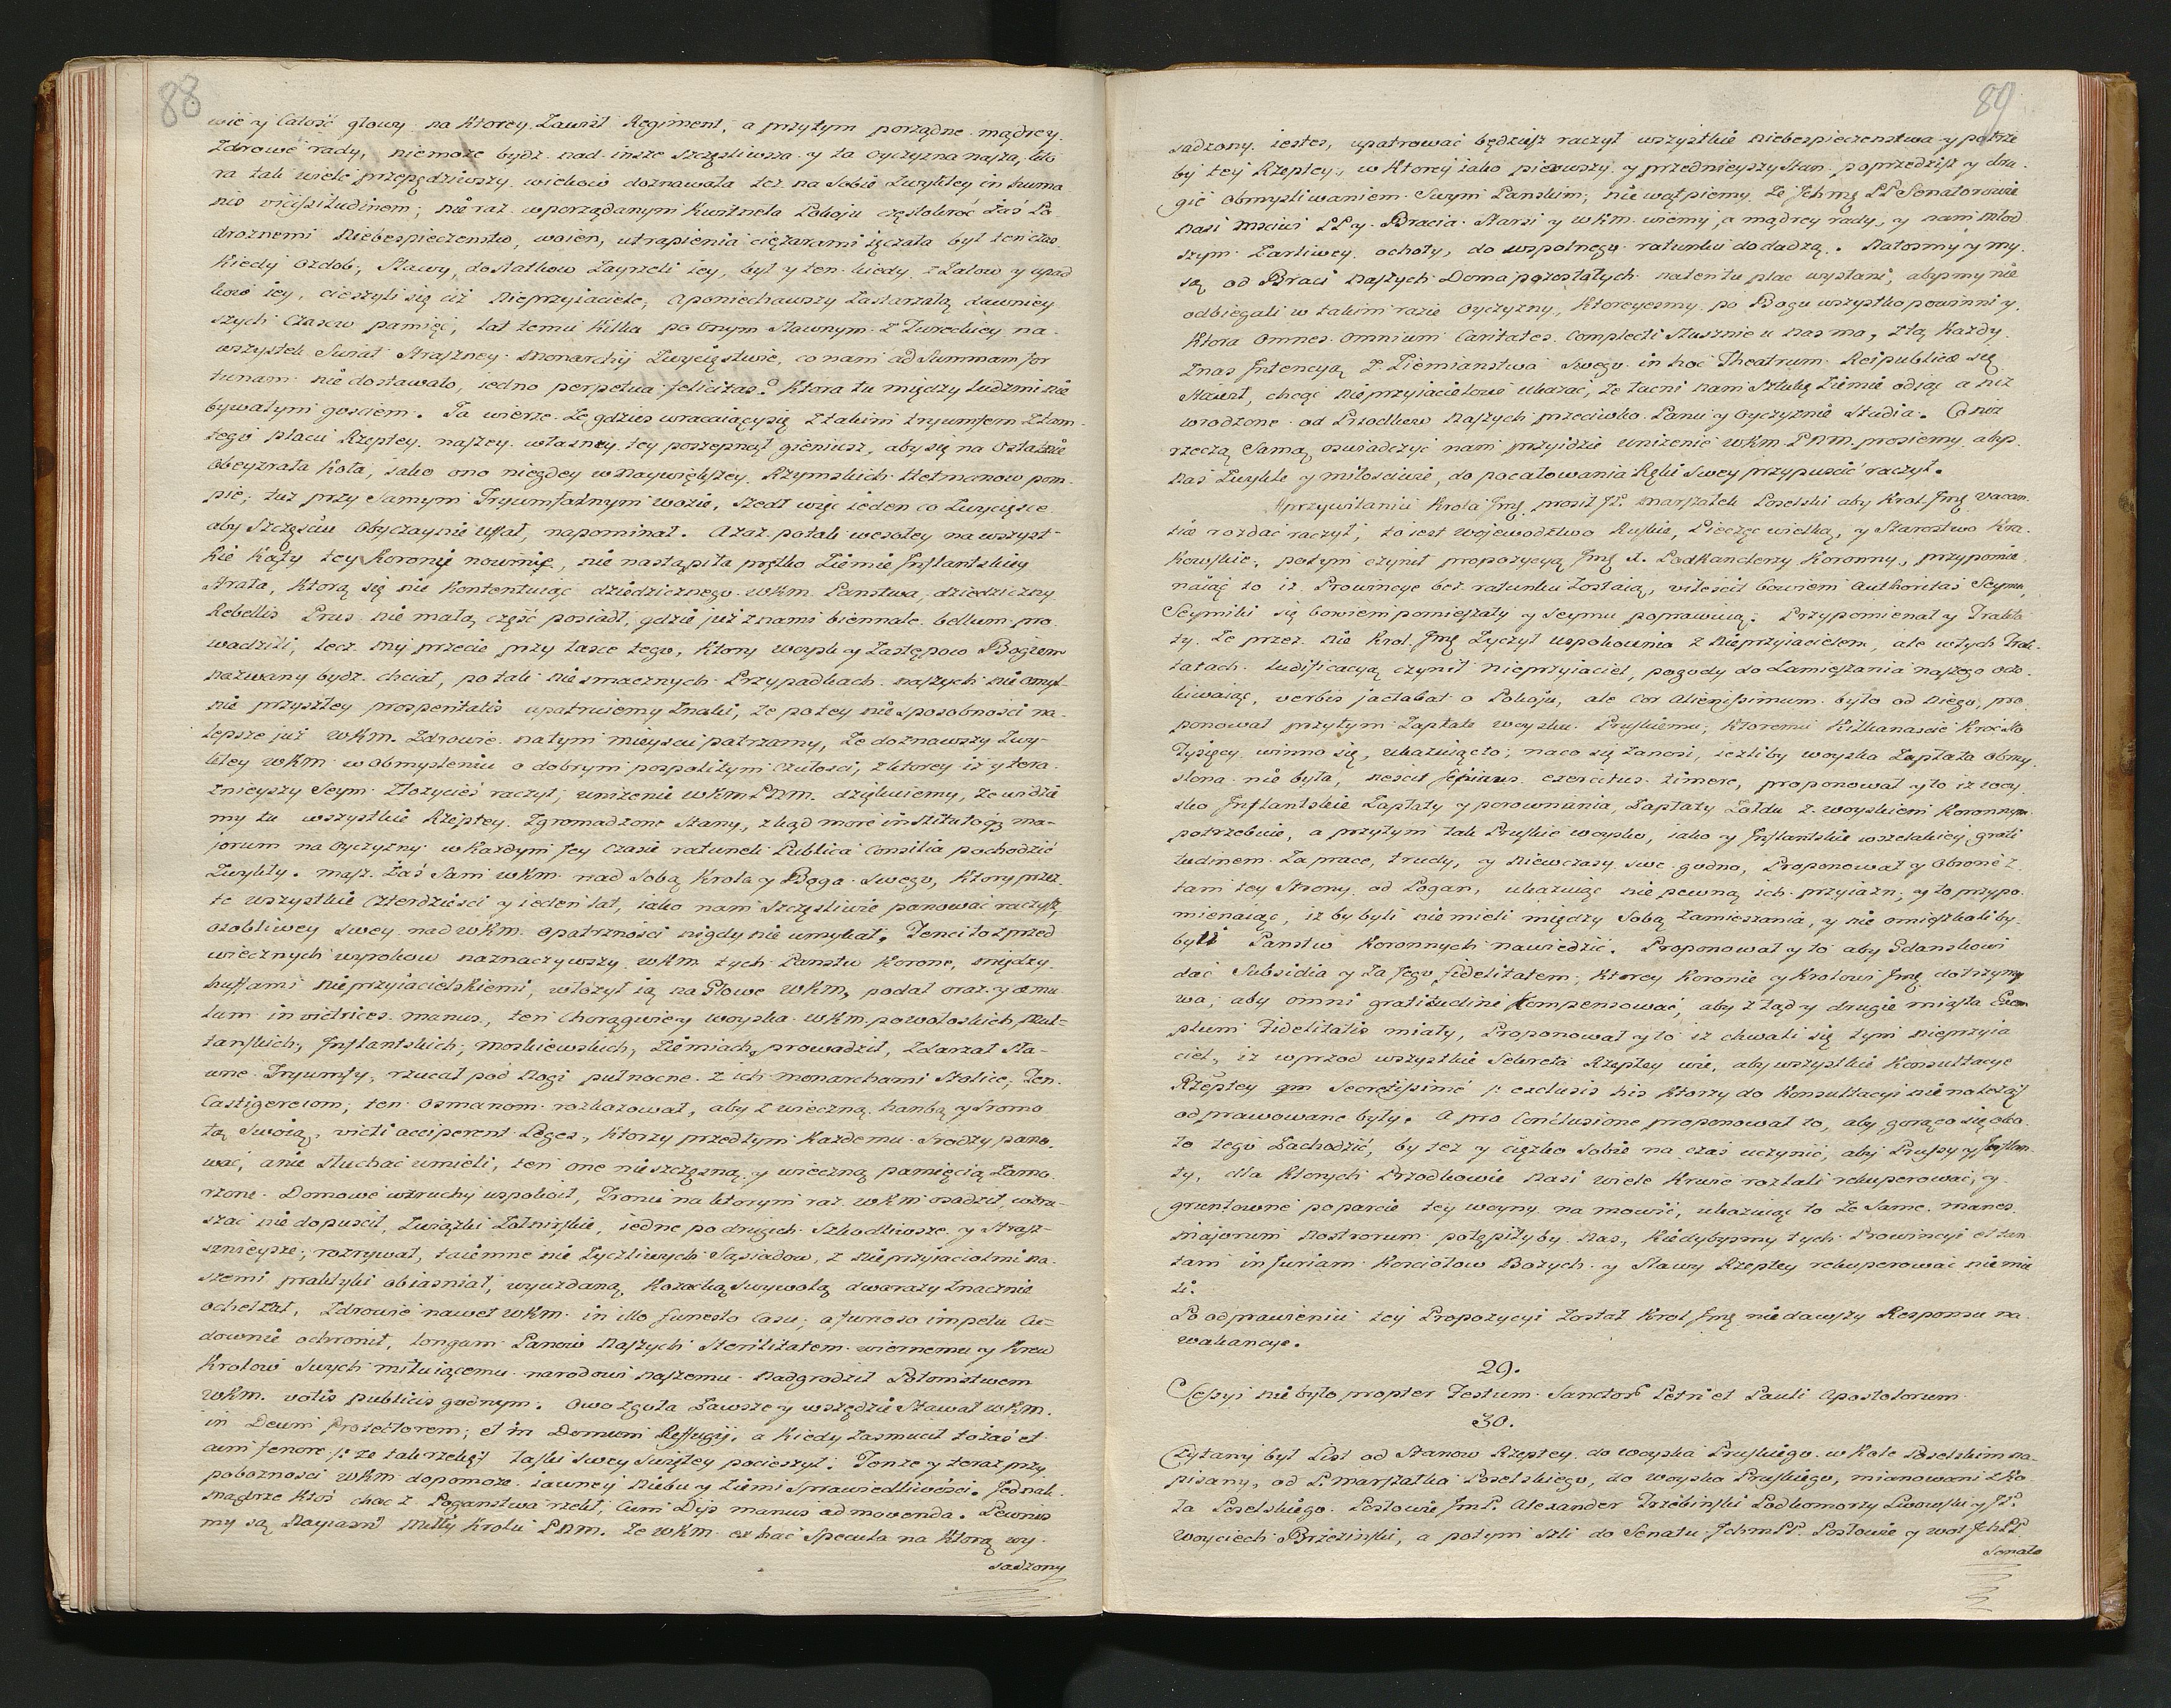 88
wie y Całość głowy na ktorey Zawisł Regiment, a przytym porządne mądrey
Zdrowe rady, niemoże bydź nad insze szczęsliwsza y ta oyczyzna nasza, kto
ra tak wiele przepędziwszy wiekow doznawała też na sobie Zwykłey in huma
nis vicissitudinem; nie raz w porządanym kwitnęła Pokoju częstokroć zaś Po
droznemi Niebespieczenstw, woien, utrapienia ciężarami ięczała był ten czas
kiedy ozdob, Sławy, dostatkow Zayrzeli iey, był y ten kiedy z Zalow y upad
kow iey, cieszyli się iiż Nieprzyiaciele, a poniechawszy Zastarzałą dawniey
szych Czasow pamięć, lat temu Kilka po onym Sławnym z Tureckiey na
wszystek Swiat Straszney Monarchij Zwycięstwie, co nam ad Summam for
tunam nie dostawało, iedno perpetua felicitas? Ktora tu między ludzmi nie
bywałym gosciem. Ja wierze Ze gdzies wracaiącysię z takim tryumfem z tam
tego placu Rzeptey naszey własney tey poszepnął gieniusz, aby się na Ostatnie
obeyzrała Koła, iako ono niegdey w Naywiększey Rzymskich Hetmanow pom
pie; tuż przy samym Tryumfalnym wozie, szedł więc ieden co Zwycięsce
aby szczęsciu obyczaynie uffał, napominał. Azaz potak wesołey na wszyst-
kie Kąty tey Koronie nowinie, nie nastąpiła prętko Ziemie Inflantskiey
strata, Ktorą się nie Kontentuiąc dziedzicznego WKm Panstwa dziedziczny
Rebellis Prus nie małą część posiadł, gdzie już z nami biennale bellum pro
wadzili, lecz My przecie przy łasce tego, Ktory woysk y Zastępow Bogiem
nazwany bydz chciał, po tak nie smacznych Przypadkach naszych nie omyl-
nie przyszłey prosperitatis upatruiemy Znaki, Ze po tey nie sposobności na-
lepsze już WKm. Zdrowie natym mieyscu patrzamy, Ze doznawszy Zwy-
kłey WKm w obmysleniu o dobrym pospolitym czułosci, z ktorey iż y tera
znieyszy Seym Złozycieś raczył, unizenie WKm PNM. dziękuiemy, Ze widzie
my tu wszystkie Rzeptey Zgromadzone Stany, z kąd more instituto ma-
jorum na oyczyzny w Każdym Jey czasie ratunek Publica Consilia pochodzić
Zwykły. masz Zaś Sam WKm nad sobą Krola y Boga swego, Ktory przez
te wszystkie czterdziesci y ieden lat, iako nam szczęsliwie panować raczysz,
osobliwey swey nad WKm opatrznosci nigdy nie umykał. Tenci to z przed
wiecznych wyrokow naznaczywszy WKm tych Panstw Koronę, między
huffami nieprzyiacielskiemi, włożył ią na Głowe WKm, podał oraz y aemu
lum in victrices manus, ten Chorągwie y woyska WKm po wołoskich, Mul-
tanskich, Inflantskich, moskiewskich, Ziemiach prowadził, Zdarzał sła-
wne Tryumfy, rzucał pod Nogi pułnocne z ich monarchami Stolice, Ten
Castigereiom, ten osmanom rozkazował, aby z wieczną hanbą y sromo
tą swoią, victi acciperent Leges, Ktorzy przedtym Każdemu srodzy pano
wać, anie Słuchać umieli, ten one nieszczęsną y wieczną pamięcią Zamo
rzone Domowe wzruchy uspokoił, Tronu na ktorym raz WKm osadził, wzru
szać nie dopuscił, Związki Zołnirskie, iedne po drugich szkodliwsze y strasz-
sznieysze, rozrywał, taiemne nie Zyczliwych Sąsiadow, z nieprzyiaciołmi na
szemi praktyki obiasniał, wyuzdaną Kozacką Swywolą dwa razy Znacznie
ochełzał, Zdrowie nawet WKm in illo funesto casu, a furioso impetu Cu-
downie ochronił, longam Panow naszych Sterilitatem wiernemu y Krew
Krolow swych miłuiącemu narodowi naszemu Nadgrodził Potomstwem
WKm. votis publicis godnym. owo zgoła Zawsze y wszędzie stawał WKm.
in Deum protectorem; et in Domum Reffugij, a Kiedy Zasmucił to zaś et
cum fenore /: ze tak rzekę:/ łaski swey swiętey pocieszył. Tenze y teraz przy
poboznosci WKm dopomoze iawney Niebu y Ziemi sprawiedliwości. Jednak
mądrze Ktoś choc z Poganstwa rzekł, Cum Dijs manus admovenda. Pewnis
my są Nayiasn Miłty Krolu PNM. Ze WKm ex hac Specula na Ktorą wy-
sadzony

89
sadzony iestes, upatrować będziesz raczył wszystkie niebespieczenstwa y potrze
by tey Rzeptey, w Ktorey iako pierwszy y przednieyszy Stan poprzedzisz y dru
gie obmysliwaniem Swym Panskim, nie wątpiemy Ze Jchmę PP Senatorowie
Nasi Msciwi PP y Bracia Starsi y WKm wiemy, a mądrey rady, y nam Młod
szym Zarliwey ochoty, do wspolnego ratunku dodadzą. Natosmy y my
są od Braci Naszych Doma pozostałych naten tu plac wysłani, abysmy nie
odbiegali w takim razie oyczyzny, Ktoreyesmy po Bogu wszystko powinni y
Ktora omnes omnium Caritates Complecti Słusznie u nas ma, Z tą Każdy
z nas Intencyą z Ziemianstwa swego in hoc Theatrum Reipublicæ się
stawił, chcąc nieprzyiacielowi ukazać, Ze łacni nam Sztukę Ziemie odiąc a niż
wrodzone od Przodkow naszych przeciwko Panu y oyczyznie Studia. Co niż
rzeczą samą oswiadczyć nam przyidzie unizenie WKm PNM. prosiemy abys
nas Zwykle y miłosciwie, do pocałowania Ręki swey przypuscić raczył.
Przywitaniu Krola Jmę prosił JP. marszałek Poselski aby Krol Jmę vacan
tia rozdać raczył, to iest Wojewodztwo Ruskie, Pieczęc wielką, y Starostwo Kra
kowskie, potym czynił propozycyą Jmę X. Podkanclerzy Koronny, przypomi
naiąc to iż Prowincye bez ratunku Zostaią, vilescit bowiem Authoritas Seymu,
Seymiki się bowiem pomieszały y seymu poprawuią. Przypomienał y Trakta
ty, Ze przez nie Krol Jmę Zyczył uspokoienia z Nieprzyiacielem, ale w tych Trak
tatach ludificacyą czynił nieprzyiaciel, pogody do Zamieszania naszego ocze
kiwaiąc, verbis jactabat o Pokoju, ale cor alienissimum było od niego, pro
ponował przytym Zapłate woysku Pruskiemu, Ktoremu Kilkanascie Kroć sto
Tysięcy winno się, ukazuiąc to; na co się Zanosi, iezliby woyska Zapłata obmy
slona nie była, nescit exercitus timere, proponował y to iz woy
sko Inflantskie Zapłaty y porownania, Zapłaty Zołdu z woyskiem Koronnym
potrzebuie, a przytym tak Pruskie woysko, iako y Inflantskie wszelakiey grati
tudinem Za prace, trudy, y niewczasy swe godno, Proponował y obrone z
tam tey strony od Pogan, ukazuiąc nie pewną ich przyiazn, y to przypo
mienaiąc, iż by byli nie mieli między sobą zamieszania, y nie omieszkaliby
byli Panstw Koronnych nawiedzić. Proponował y to aby Gdanskowi
dać Subsidia y Za Jego fidelitatem, Ktorey Koronie y Krolowi Jmę dotrzymy
wa, aby omni gratitudini Kompensować, aby z tąd y drugie miasta Exem
plum Fidelitatis miały, Proponował y to iż chwali się tym nieprzyia
ciel, iż wprzod wszystkie Sekreta Rzeptey wie, aby wszystkie Konsultacye
Rzeptey qm Secretissimé /: exclusis his Ktorzy do Konsultacyi nie nalezą:/
odprawowane były. A pro Conclusione proponował to, aby gorąco się oko
ło tego Zachodzić, by też y cięzko sobie na czas uczynić, aby Prussy y Inflan
ty, dla Ktorych Przodkowie nasi wiele Krwie rozlali rekuperować, y
gruntowne poparcie tey woyny na mowić, ukazuiąc to Ze same manes
majorum nostrorum potępiłyby nas, Kiedybysmy tych Prowincyi et tan
tam injuriam Kosciołow Bożych y Sławy Rzeptey rekuperować nie mie
li.
Po odprawieniu tey Propozycyi został Krol Jmę nie dawszy Responsu na
wakancye.
29.
Sessyi nie było propter Festum Sanctor Petri et Pauli Apostolorum
30.
Czytany był List od Stanow Rzeptey do woyska Pruskiego w Kole Poselskim na
pisany, od P. marszałka Poselskiego, do woyska Pruskiego, mianowani z Ko
ła Poselskiego Posłowie JmP. Alexander Trzebinski Podkomorzy Lwowski y JP.
Woyciech Brzezinski, a potym szli do Senatu JchmPP. Posłowie y wot JchPP.
Senato